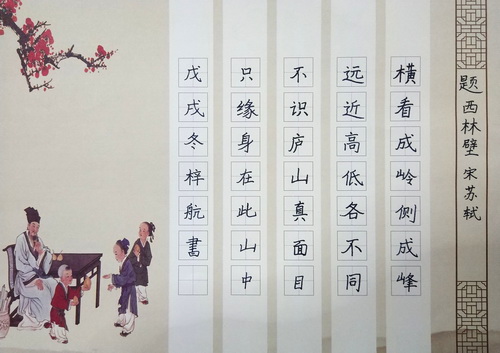 题西林壁 宋苏轼
横看成岭侧成峰
远近高低各不同
不识庐山真面目
只缘身在此山中
戊戌冬梓航書